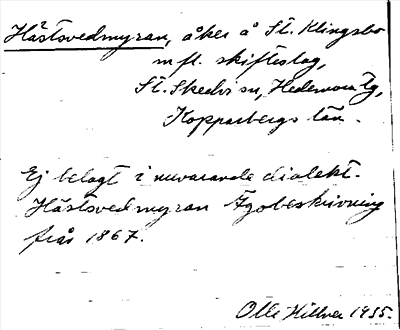 Hästsvedmyran, åker å St. Klingsbo
m fl. skifteslag,
St. Skedvi sn, Hedemora tg,
Kopparbergs län.
Ej belagt i nuvarande dialekt.
Hästsvedmyran Ägobeskrivning
från 1867.
Olle Hillver 1955.